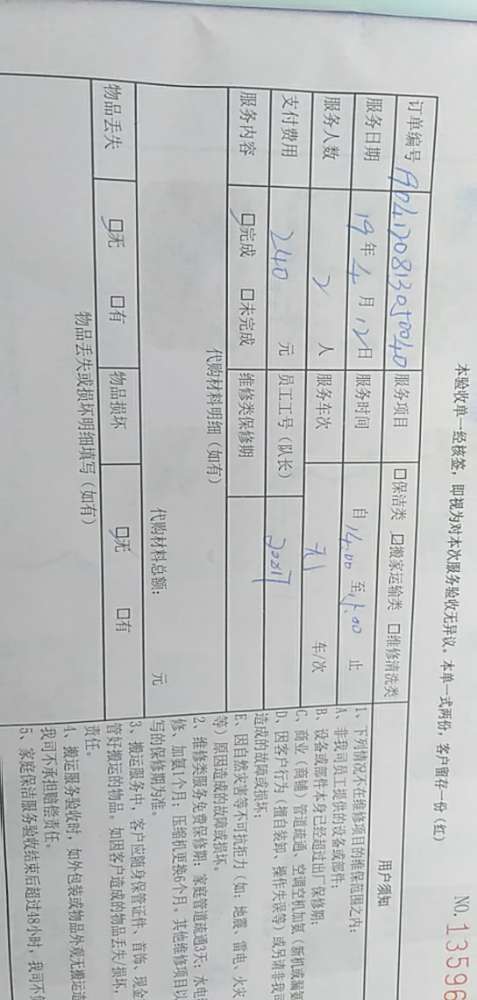 本验收单一经核签，即视为对本次服务验收无异议。本单一式两份，客户留存一份（红）
NO. 13596
订单编号 A04120813050040 服务项目 □保洁类 ☑搬家运输类 □维修清洗类
服务日期 19年4月12日 服务时间 自14:00至17:00止
服务人数 2人 服务车次 无 车/次
支付费用 240元 员工工号（队长） 2007
服务内容 ☑完成 □未完成 维修类保修期
代购材料明细（如有）
代购材料总额： 元
物品丢失 ☑无 □有 物品损坏 ☑无 □有
物品丢失或损坏明细填写（如有）
用户须知
1、下列情况不在维修项目的维保范围之内：
A、非我司员工提供的设备或部件；
B、设备或部件本身已经超过出厂保修期；
C、商业（商铺）管道疏通、空调空机加氨（新机或漏氨
D、因客户行为（擅自装卸、操作失误等）或另请非我司
造成的故障或损坏；
E、因自然灾害等不可抗拒力（如：地震、雷电、火灾
等）原因造成的故障或损坏。
2、维修类服务免费保修期：家庭管道疏通3天；水电
修、加氨1个月；压缩机更换6个月。其他维修项目以
写的保修期为准。
3、搬运服务中，客户应随身保管证件、首饰、现金
管好搬运的物品。如因客户造成的物品丢失/损坏，
责任。
4、搬运服务验收时，如外包装或物品外观无搬运造
我司不承担赔偿责任。
5、家庭保洁服务验收结束后超过48小时，我司不负